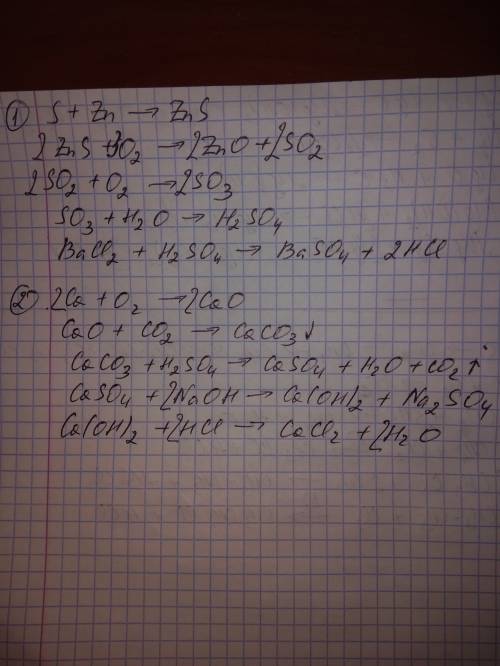 ① S + Zn → ZnS
2ZnS + 3O₂ → 2ZnO + 2SO₂
2SO₂ + O₂ → 2SO₃
SO₃ + H₂O → H₂SO₄
BaCl₂ + H₂SO₄ → BaSO₄ + 2HCl
② 2Ca + O₂ → 2CaO
CaO + CO₂ → CaCO₃↓
CaCO₃ + H₂SO₄ → CaSO₄ + H₂O + CO₂↑
CaSO₄ + 2NaOH → Ca(OH)₂ + Na₂SO₄
Ca(OH)₂ + 2HCl → CaCl₂ + 2H₂O